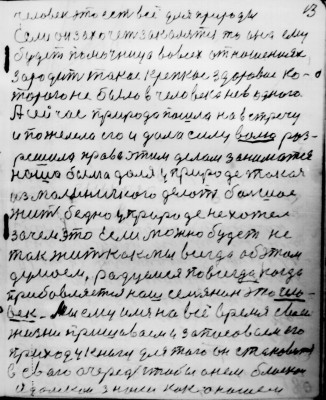 13
человек это есть всё для природы
Если он захочет закалятся то она ему
будет помочница во всех отношениях
зародит такое крепкое здоровие ко-
торого не было в человека не в одного
А сейчас природа пошла на встречу
и пожелела его и дала силу воля раз-
решила права этим делам заниматся
наша была доля у природе такая
из маленького делать большое
жит бедно у природе не хотел
зачем это если можно будет не
так жит как мы всегда об этом
думаем, радуемся повсегда когда
прибавляется наш семянин это чело-
век. Мы ему имя на всё время своей
жизни прицеваем и записоваем его
приходу книгу для того он становит
в своего очередь чтобы о нем близко
и далеко знали как о нашем